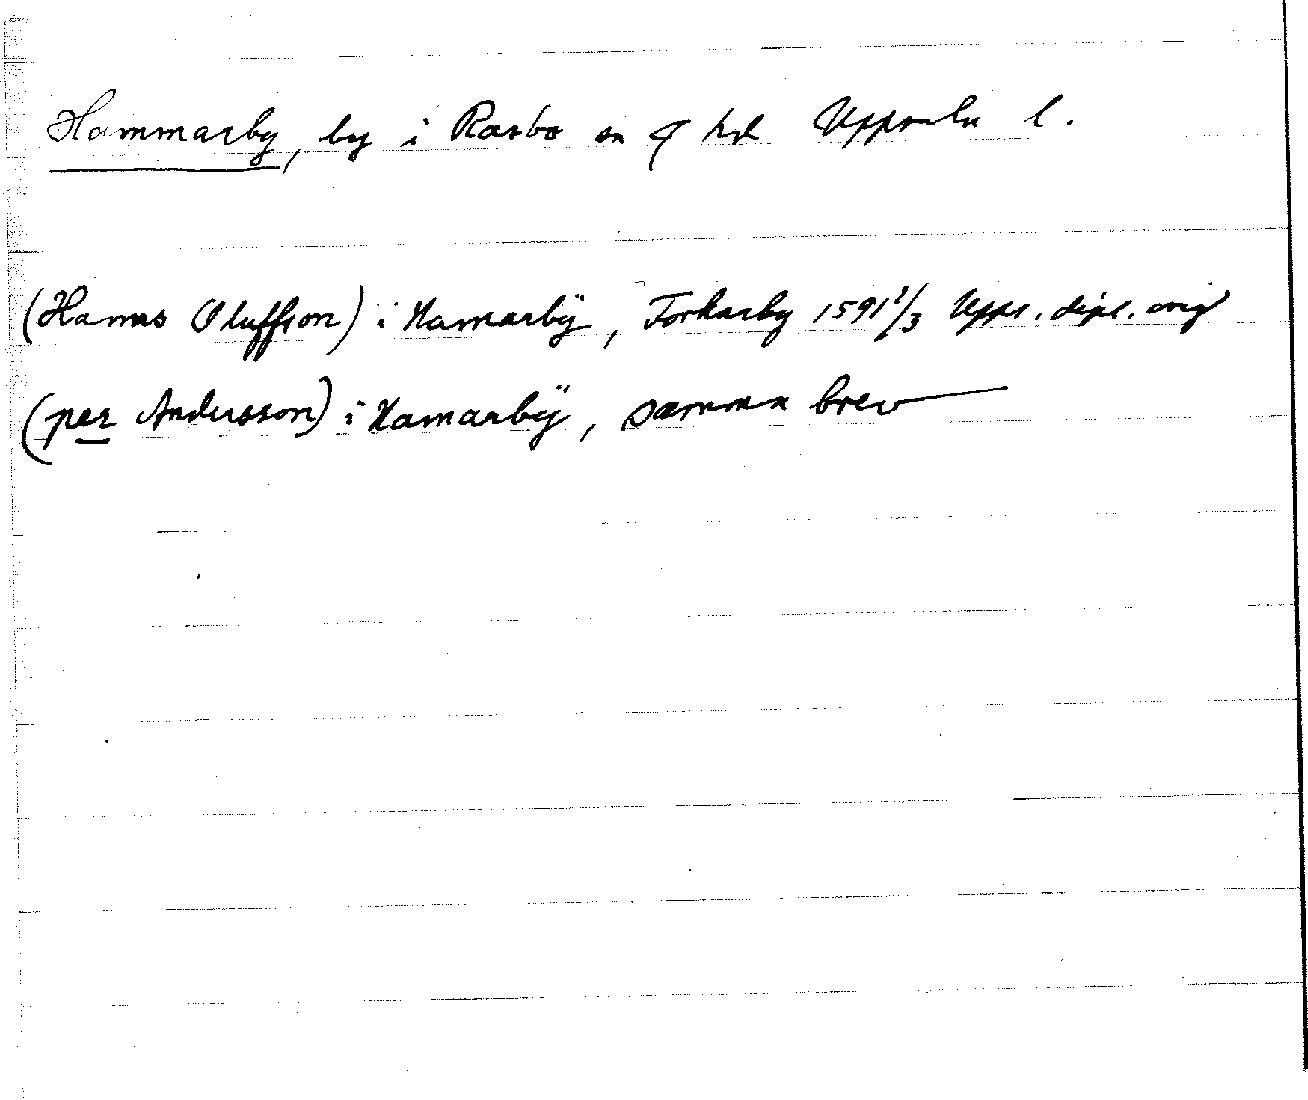 Hammarby, by i Rasbo sn o hd Uppsala l.
(Hanns Oluffson) i Hamarbÿ, Torkarby 1591 1/3 Upps. dipl. orig
(per Andersson) i Hamarbÿ, samma brev